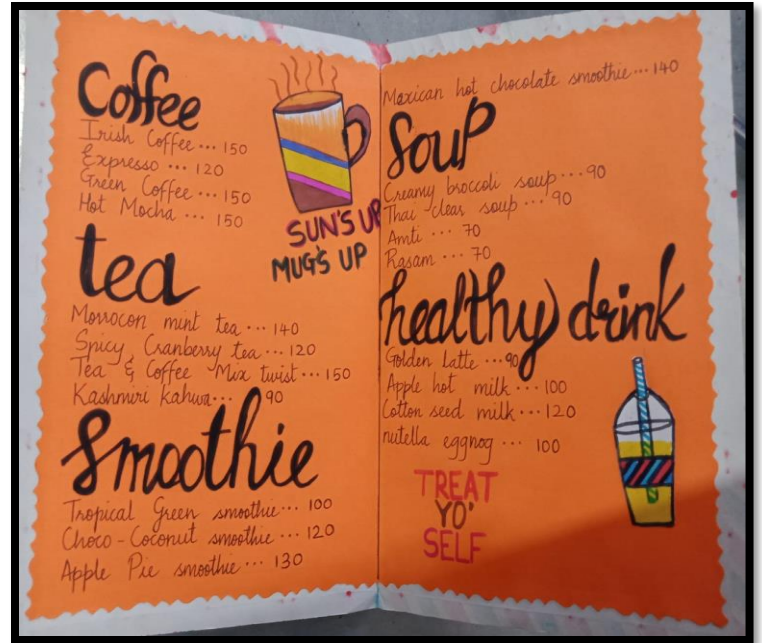 Coffee
Irish Coffee... 150
Expresso ... 120
Green Coffee... 150
Hot Mocha ... 150
SUN'S UP
MUG'S UP
tea
Morrocon mint tea... 140
Spicy Cranberry tea... 120
Tea & Coffee Mix twist... 150
Kashmiri kahwa... 90
Smoothie
Tropical Green smoothie... 100
Choco-Coconut smoothie... 120
Apple Pie smoothie... 130
Mexican hot chocolate smoothie... 140
Soup
Creamy broccoli soup... 90
Thai clear soup... 90
Amti ... 70
Rasam ... 70
healthy drink
Golden latte ...90
Apple hot milk... 100
Cotton seed milk... 120
nutella eggnog ... 100
TREAT
YO'
SELF